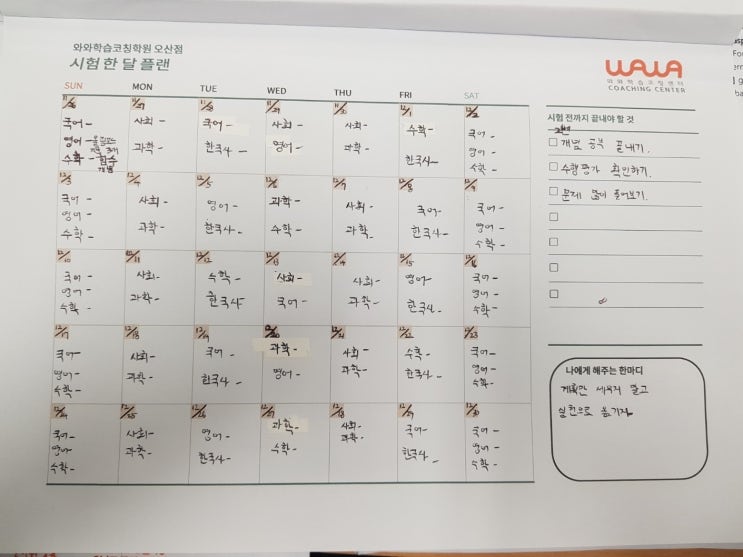 와와학습코칭학원 오산점
시험 한 달 플랜
WAWA
와와학습코칭센터
COACHING CENTER
SUN MON TUE WED THU FRI SAT
11/26 11/27 11/28 11/29 11/30 12/1 12/2
국어- 사회- 국어- 사회- 사회- 수학- 국어-
영어- 과학- 한국사- 영어- 과학- 한국사- 영어-
수학- 함수 개념 수학-
12/3 12/4 12/5 12/6 12/7 12/8 12/9
국어- 사회- 영어- 과학- 사회- 국어- 국어-
영어- 과학- 한국사- 수학- 과학- 한국사- 영어-
수학- 수학-
12/10 12/11 12/12 12/13 12/14 12/15 12/16
국어- 사회- 수학- 사회- 사회- 영어- 국어-
영어- 과학- 한국사- 국어- 과학- 한국사- 영어-
수학- 수학-
12/17 12/18 12/19 12/20 12/21 12/22 12/23
국어- 사회- 국어- 과학- 사회- 수학- 국어-
영어- 과학- 한국사- 영어- 과학- 한국사- 영어-
수학- 수학-
12/24 12/25 12/26 12/27 12/28 12/29 12/30
국어- 사회- 영어- 과학- 사회- 국어- 국어-
영어- 과학- 한국사- 수학- 과학- 한국사- 영어-
수학- 수학-
시험 전까지 끝내야 할 것
개념 공부 끝내기.
수행평가 확인하기.
문제 많이 풀어보기.
나에게 해주는 한마디
계획만 세우지 말고
실천으로 옮기자